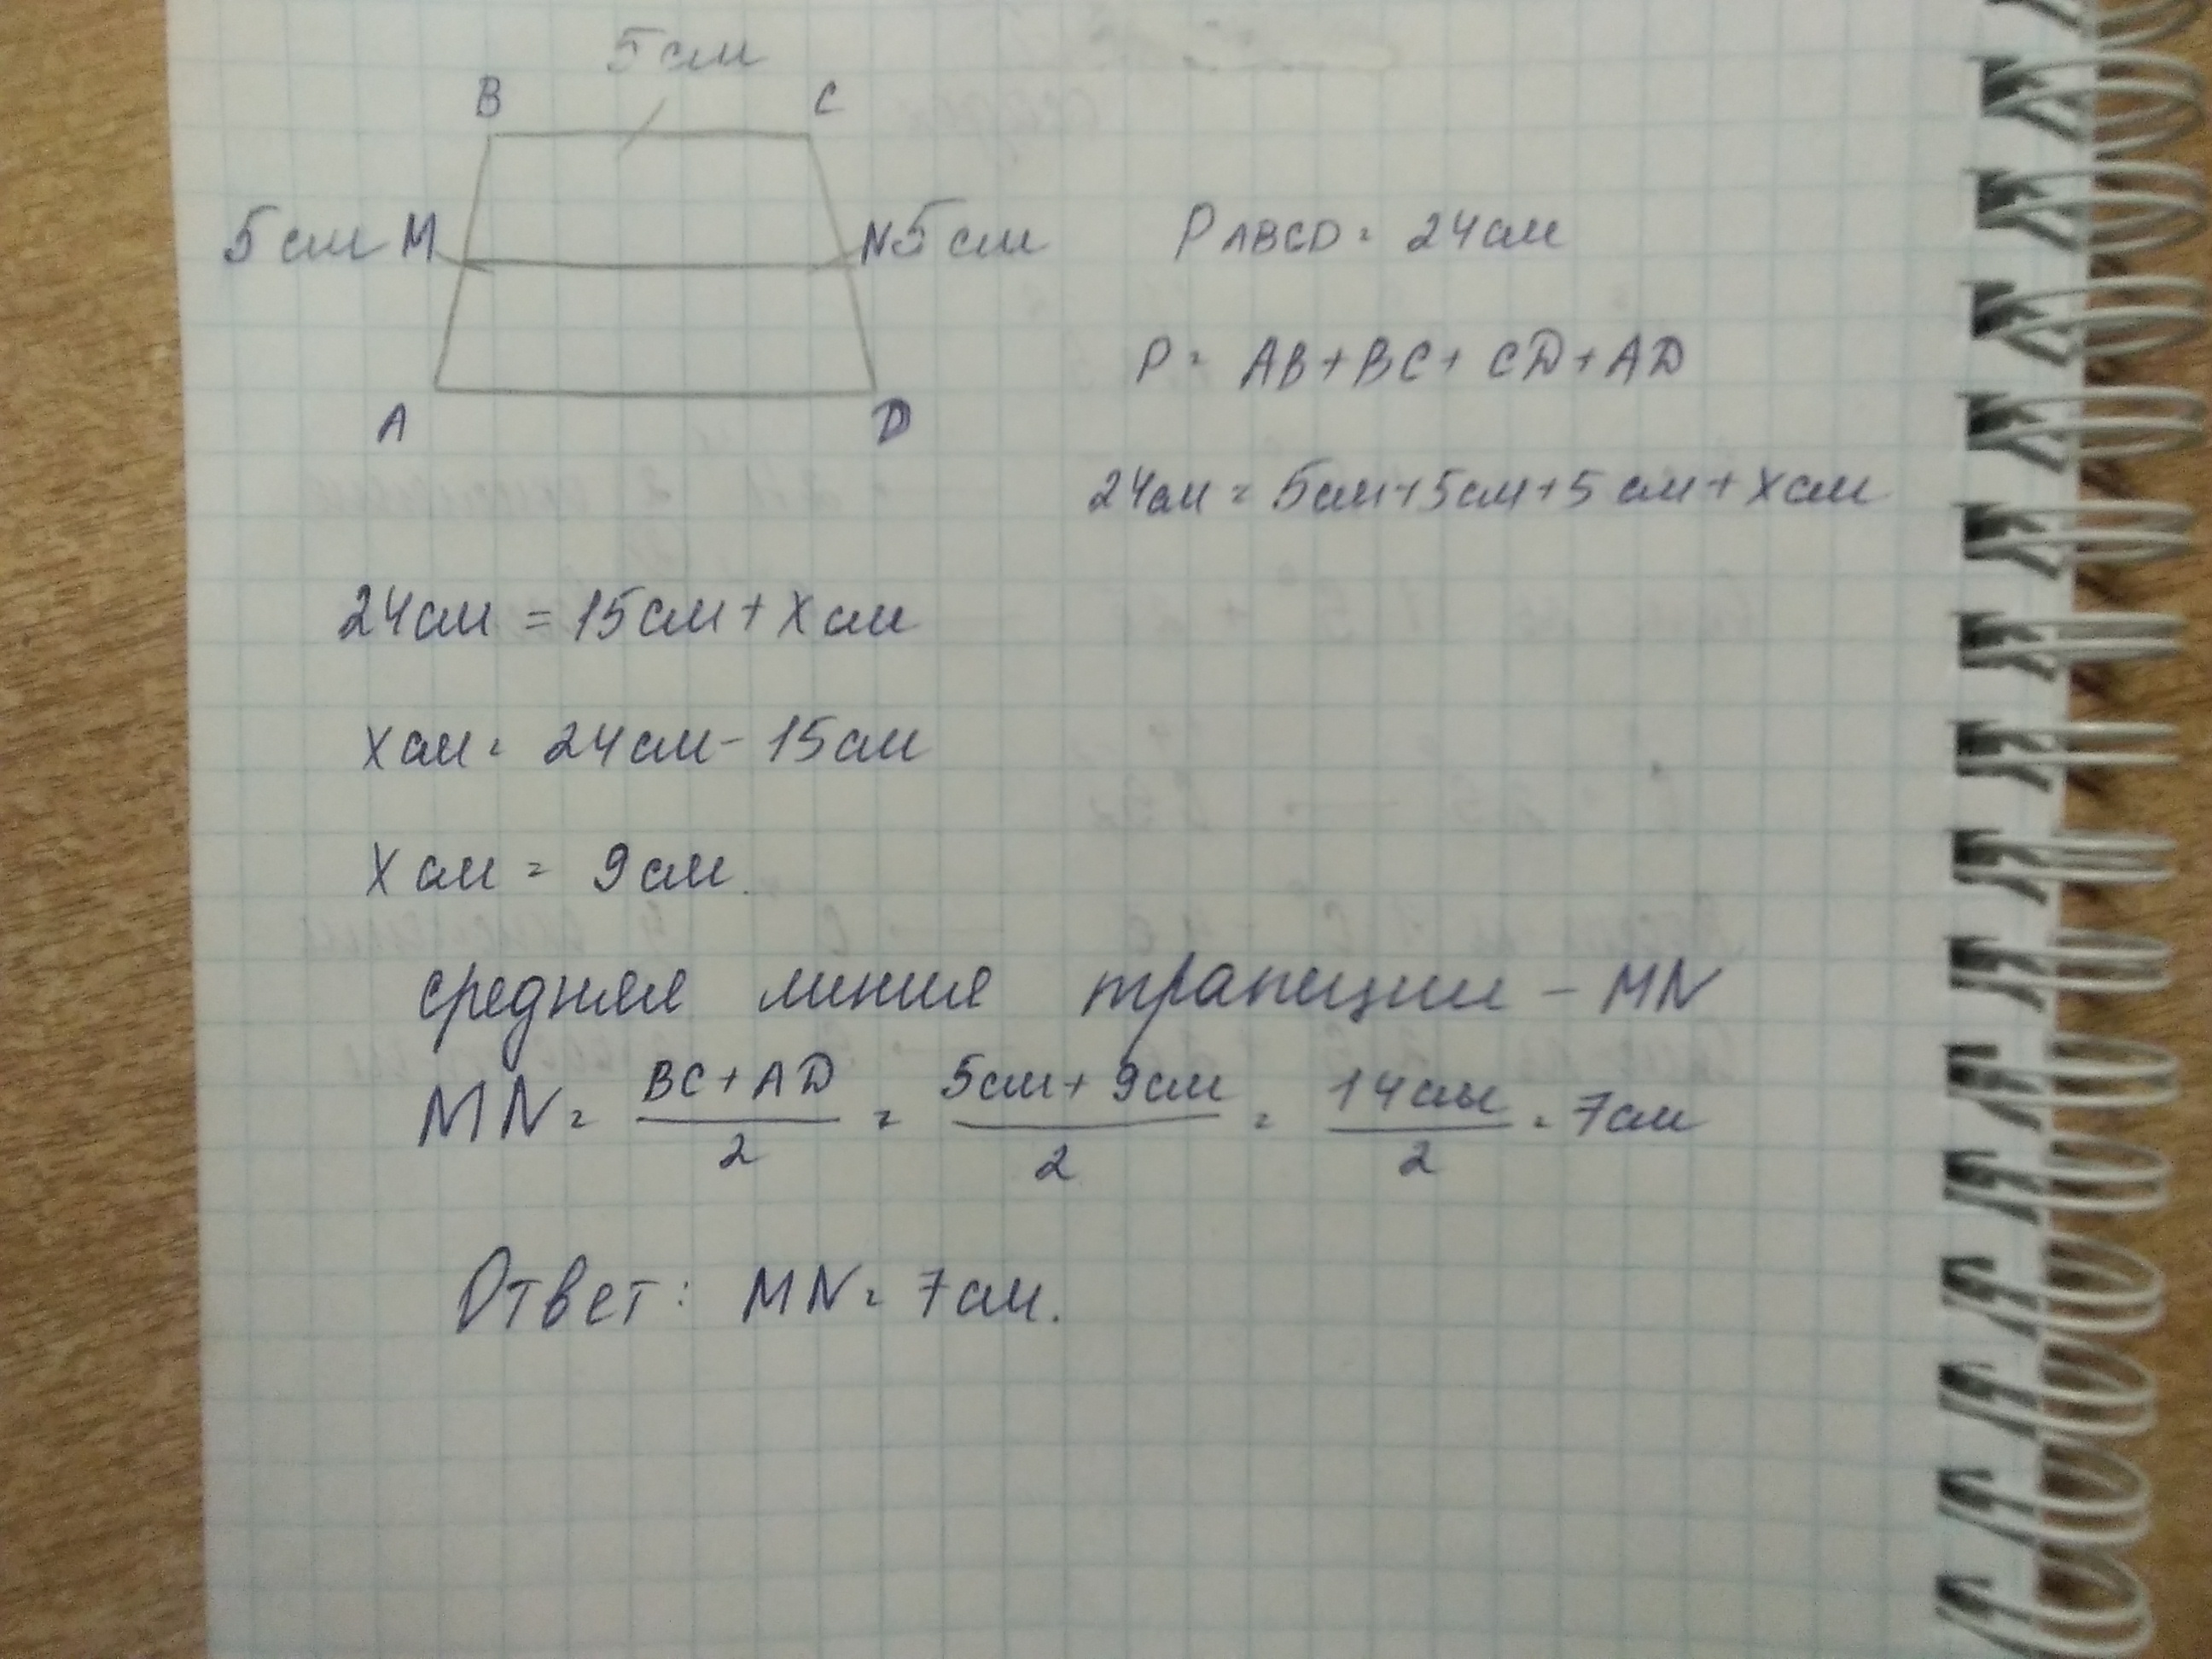 5 см
B C
5 см M N 5 см
A D
P ABCD = 24 см
P = AB + BC + CD + AD
24 см = 5 см + 5 см + 5 см + x см
24 см = 15 см + x см
x см = 24 см - 15 см
x см = 9 см.
средняя линия трапеции – MN
MN = BC + AD / 2 = 5 см + 9 см / 2 = 14 см / 2 = 7 см
Ответ: MN = 7 см.